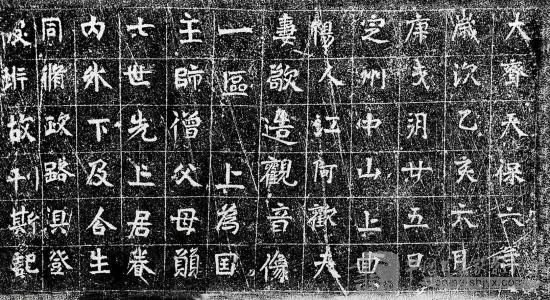 大齊天保六年
歲次乙亥六月
庚戌朔廿五日
定州中山上曲
楊人江阿歡夫
妻敬造觀音像
一區上為国
主師僧父母願
七世先亡居眷
內外下及含生
同脩政路俱登
彼岸故刊斯記